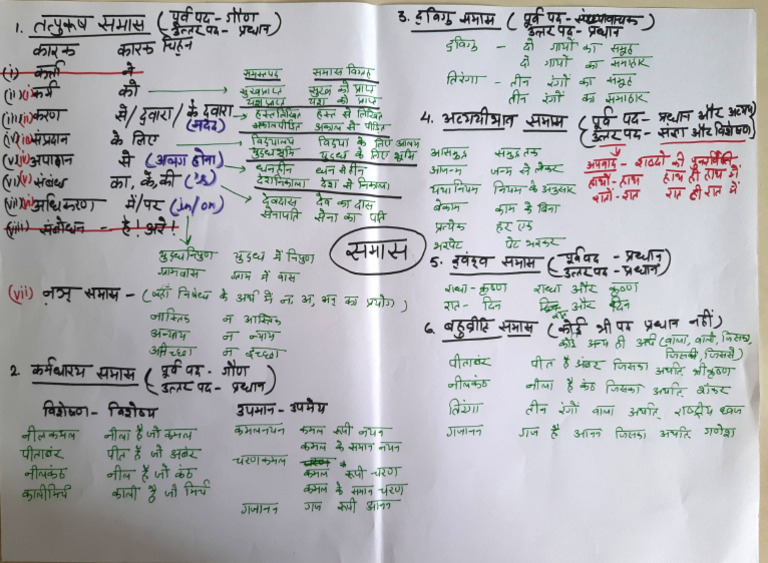 1. तत्पुरुष समास (पूर्व पद - गौण
उत्तर पद - प्रधान)
कारक कारक चिह्न
(i) कर्ता ने
(ii)(i) कर्म को
(iii)(ii) करण से/द्वारा/के द्वारा
(मदद)
संप्रदान के लिए
अपादान से (अलग होना)
संबंध का, के, की ('s)
अधिकरण में/पर (in/on)
(viii) संबोधन - हे! अरे!
समस्तपद समास विग्रह
सुखप्राप्त सुख को प्राप्त
यशप्राप्त यश को प्राप्त
हस्तलिखित हस्त से लिखित
अकालपीड़ित अकाल से पीड़ित
विद्यालय विद्या के लिए आलय
युद्धभूमि युद्ध के लिए भूमि
धनहीन धन से हीन
देशनिकाला देश से निकाला
देवदास देव का दास
सेनापति सेना का पति
युद्धनिपुण युद्ध में निपुण
ग्रामवास ग्राम में वास
(vii) नञ् समास - (जहाँ निषेध के अर्थ में न, अ, अन् का प्रयोग)
नास्तिक न आस्तिक
अन्याय न न्याय
न इच्छा
2. कर्मधारय समास (पूर्व पद - गौण
उत्तर पद - प्रधान)
विशेषण - विशेष्य
नीलकमल नीला है जो कमल
पीतांबर पीत है जो अंबर
नीलकंठ नील है जो कंठ
कालीमिर्च काली है जो मिर्च
उपमान - उपमेय
कमलनयन कमल रूपी नयन
कमल के समान नयन
चरणकमल चरण
कमल रूपी चरण
कमल के समान चरण
गजानन गज रूपी आनन
समास
3. द्विगु समास (पूर्व पद - संख्यावाचक
उत्तर पद - प्रधान)
द्विगु - दो गायों का समूह
दो गायों का समाहार
तिरंगा - तीन रंगों का समूह
तीन रंगों का समाहार
4. अव्ययीभाव समास (पूर्व पद - प्रधान और अव्यय
उत्तर पद - संज्ञा और विशेषण)
आजन्म जन्म से लेकर
यथानियम नियम के अनुसार
बेकाम काम के बिना
प्रत्येक हर एक
भरपेट पेट भरकर
अपवाद - शब्दों की पुनरावृत्ति
हाथों-हाथ हाथ ही हाथ में
रातों-रात रात ही रात में
5. द्वंद्व समास (पूर्व पद - प्रधान
उत्तर पद - प्रधान)
राधा-कृष्ण राधा और कृष्ण
रात-दिन रात और दिन
6. बहुव्रीहि समास (कोई भी पद प्रधान नहीं)
कोई अन्य ही अर्थ (वाला, वाली, जिसका,
जिसकी, जिससे)
पीतांबर पीत है अंबर जिसका अर्थात् श्रीकृष्ण
नीलकंठ नीला है कंठ जिसका अर्थात् शंकर
तिरंगा तीन रंगों वाला अर्थात् राष्ट्रीय ध्वज
गजानन गज है आनन जिसका अर्थात् गणेश